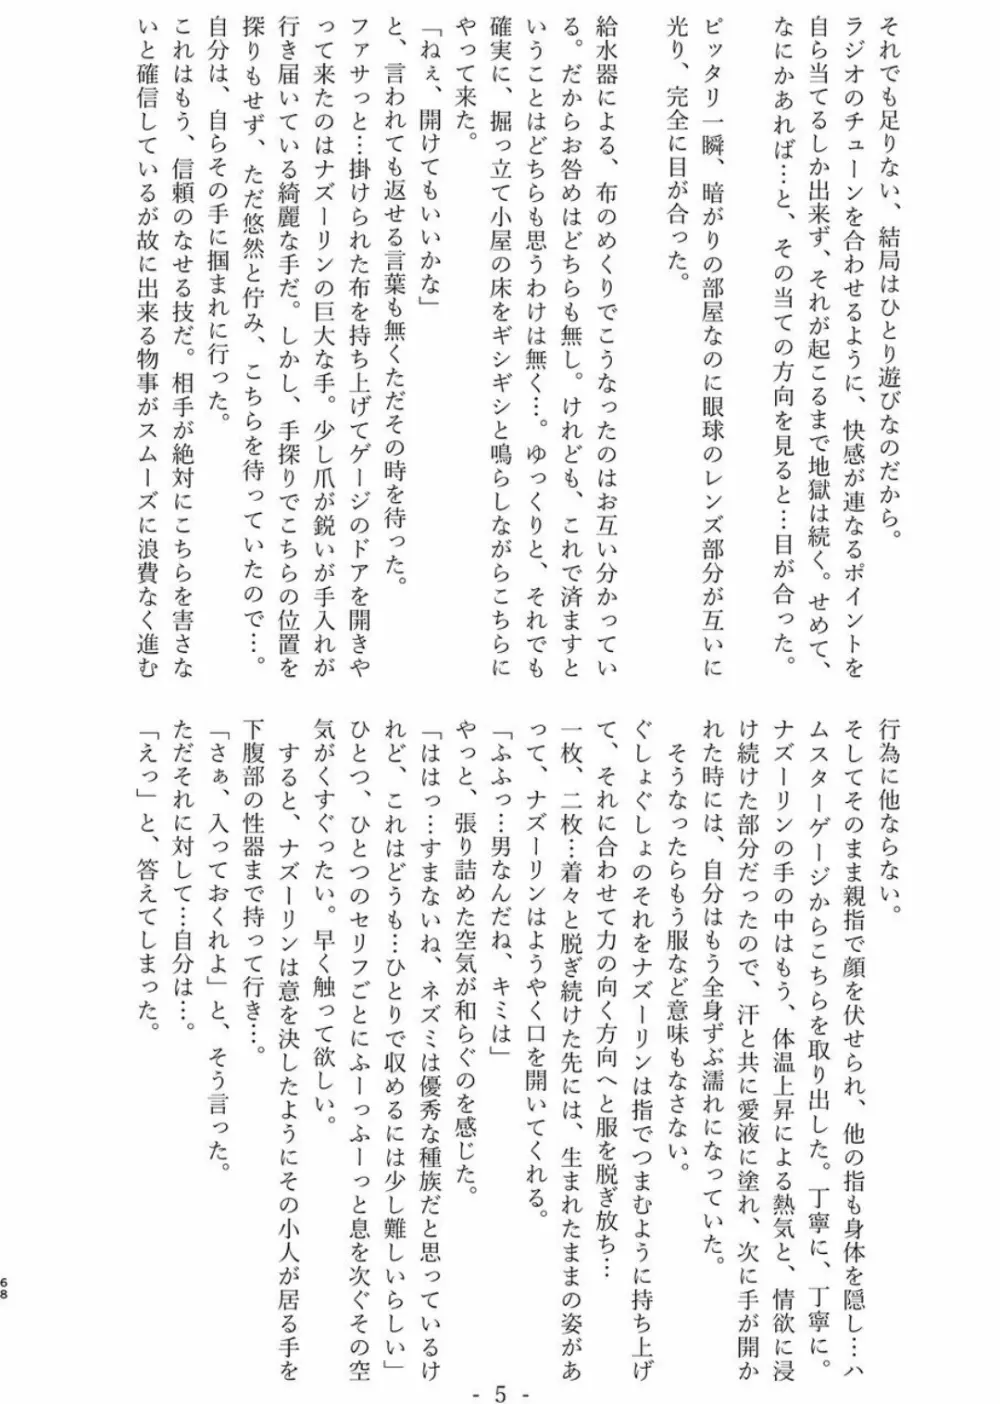 それでも足りない、結局はひとり遊びなのだから。
ラジオのチューンを合わせるように、快感が連なるポイントを
自ら当てるしか出来ず、それが起こるまで地獄は続く。せめて、
なにかあれば…と、その当ての方向を見ると…目が合った。
ピッタリ一瞬、暗がりの部屋なのに眼球のレンズ部分が互いに
光り、完全に目が合った。
給水器による、布のめくりでこうなったのはお互い分かってい
る。だからお咎めはどちらも無し。けれども、これで済ますと
いうことはどちらも思うわけは無く…。ゆっくりと、それでも
確実に、掘っ立て小屋の床をギシギシと鳴らしながらこちらに
やって来た。
「ねぇ、開けてもいいかな」
と、言われても返せる言葉も無くただその時を待った。
ファサっと…掛けられた布を持ち上げてゲージのドアを開きや
って来たのはナズーリンの巨大な手。少し爪が鋭いが手入れが
行き届いている綺麗な手だ。しかし、手探りでこちらの位置を
探りもせず、ただ悠然と佇み、こちらを待っていたので…。
自分は、自らその手に掴まれに行った。
これはもう、信頼のなせる技だ。相手が絶対にこちらを害さな
いと確信しているが故に出来る物事がスムーズに浪費なく進む
行為に他ならない。
そしてそのまま親指で顔を伏せられ、他の指も身体を隠し…ハ
ムスターゲージからこちらを取り出した。丁寧に、丁寧に。
ナズーリンの手の中はもう、体温上昇による熱気と、情欲に浸
け続けた部分だったので、汗と共に愛液に塗れ、次に手が開か
れた時には、自分はもう全身ずぶ濡れになっていた。
そうなったらもう服など意味もなさない。
ぐしょぐしょのそれをナズーリンは指でつまむように持ち上げ
て、それに合わせて力の向く方向へと服を脱ぎ放ち…
一枚、二枚…着々と脱ぎ続けた先には、生まれたままの姿があ
って、ナズーリンはようやく口を開いてくれる。
「ふふっ…男なんだね、キミは」
やっと、張り詰めた空気が和らぐのを感じた。
「ははっ…すまないね、ネズミは優秀な種族だと思っているけ
れど、これはどうも…ひとりで収めるには少し難しいらしい」
ひとつ、ひとつのセリフごとにふーっふーっと息を次ぐその空
気がくすぐったい。早く触って欲しい。
すると、ナズーリンは意を決したようにその小人が居る手を
下腹部の性器まで持って行き…。
「さぁ、入っておくれよ」と、そう言った。
ただそれに対して…自分は…。
「えっ」と、答えてしまった。
- 5 -
68